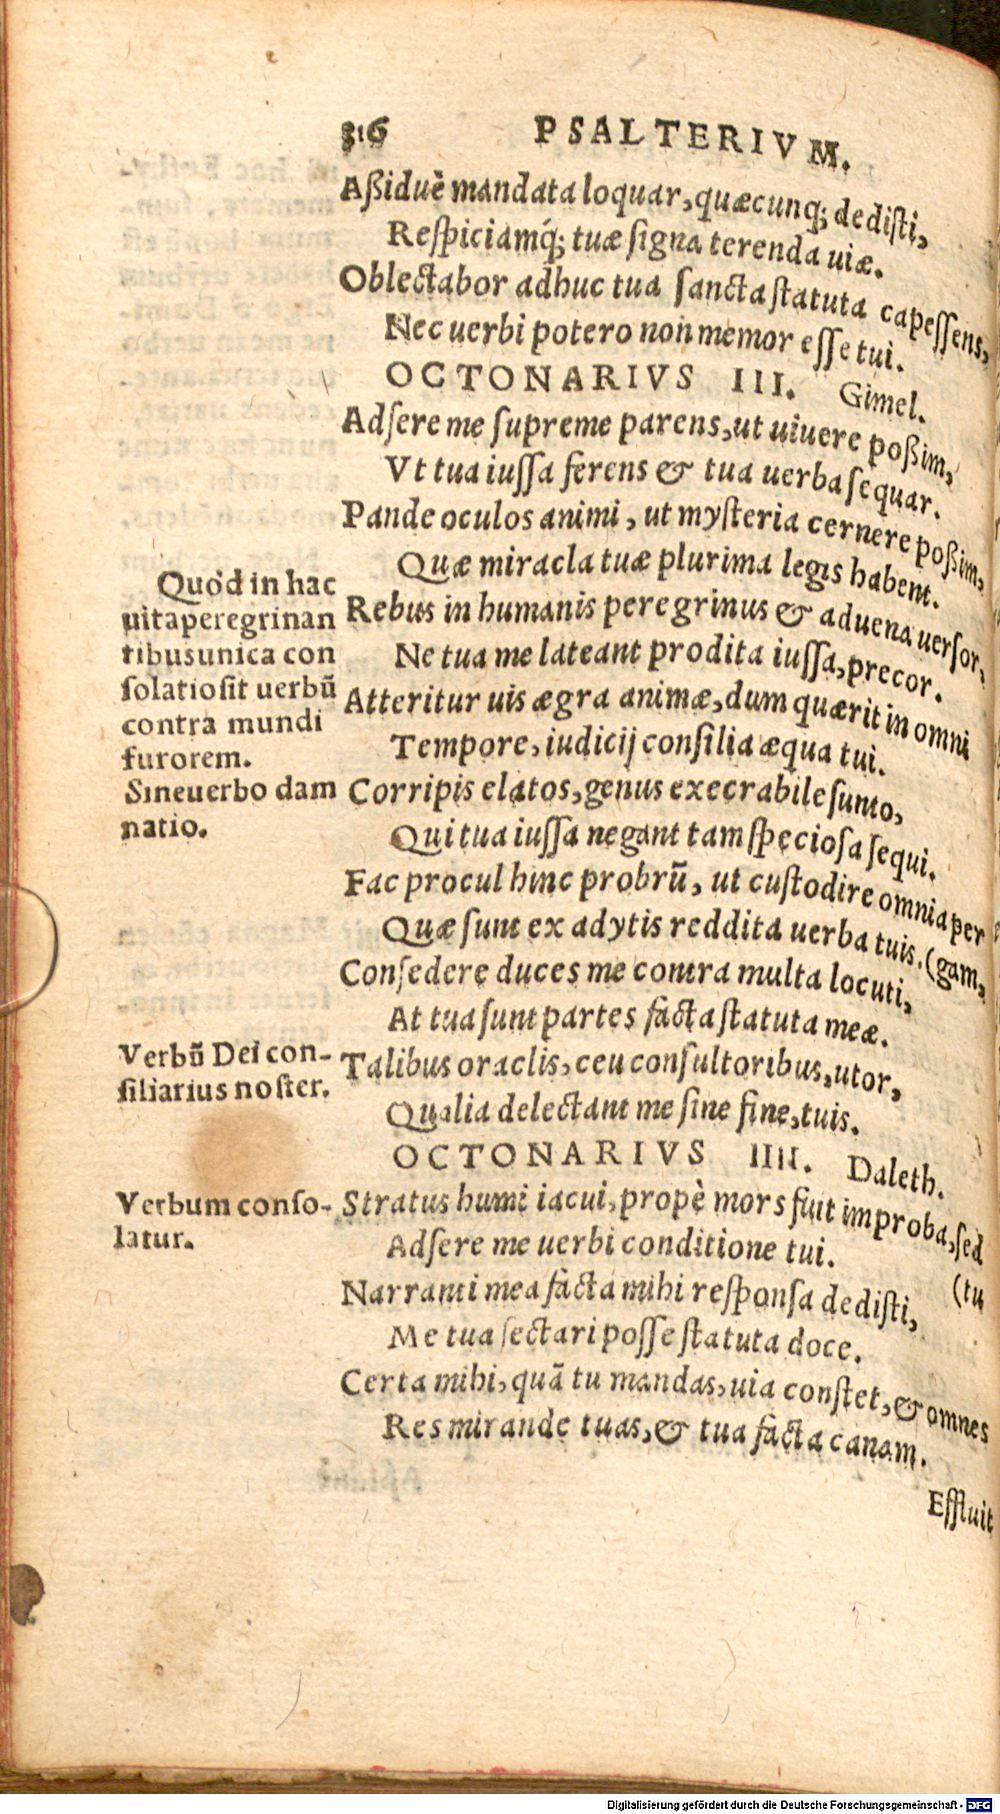 316 PSALTERIVM.
Aßiduè mandata loquar, quæcunq; dedisti,
Respiciamq́; tuæ signa terenda uiæ.
Oblectabor adhuc tua sancta statuta capessens,
Nec uerbi potero non memor esse tui.
OCTONARIVS III. Gimel.
Adsere me supreme parens, ut uiuere poßim,
Vt tua iussa ferens & tua uerba sequar.
Pande oculos animi, ut mysteria cernere poßim,
Quæ miracla tuæ plurima legis habent.
Rebus in humanis peregrinus & aduena uersor,
Ne tua me lateant prodita iussa, precor.
Atteritur uis ægra animæ, dum quærit in omni
Tempore, iudicij consilia æqua tui.
Corripis elatos, genus execrabile sunto,
Qui tua iussa negant tam speciosa sequi.
Fac procul hinc probrū, ut custodire omnia per
Quæ sunt ex adytis reddita uerba tuis. (gam,
Consedere duces me contra multa locuti,
At tua sunt partes facta statuta meæ.
Talibus oraclis, ceu consultoribus, utor,
Qualia delectant me sine fine, tuis.
OCTONARIVS IIII. Daleth.
Stratus humi iacui, propè mors fuit improba, sed
Adsere me uerbi conditione tui. (tu
Narranti mea facta mihi responsa dedisti,
Me tua sectari posse statuta doce.
Certa mihi, quā tu mandas, uia constet, & omnes
Res mirande tuas, & tua facta canam.
Effluit
Quòd in hac
uita peregrinan
tibus unica con
solatio sit uerbū
contra mundi
furorem.
Sine uerbo dam
natio.
Verbū Dei con-
siliarius noster.
Verbum conso-
latur.
Digitalisierung gefördert durch die Deutsche Forschungsgemeinschaft - DFG